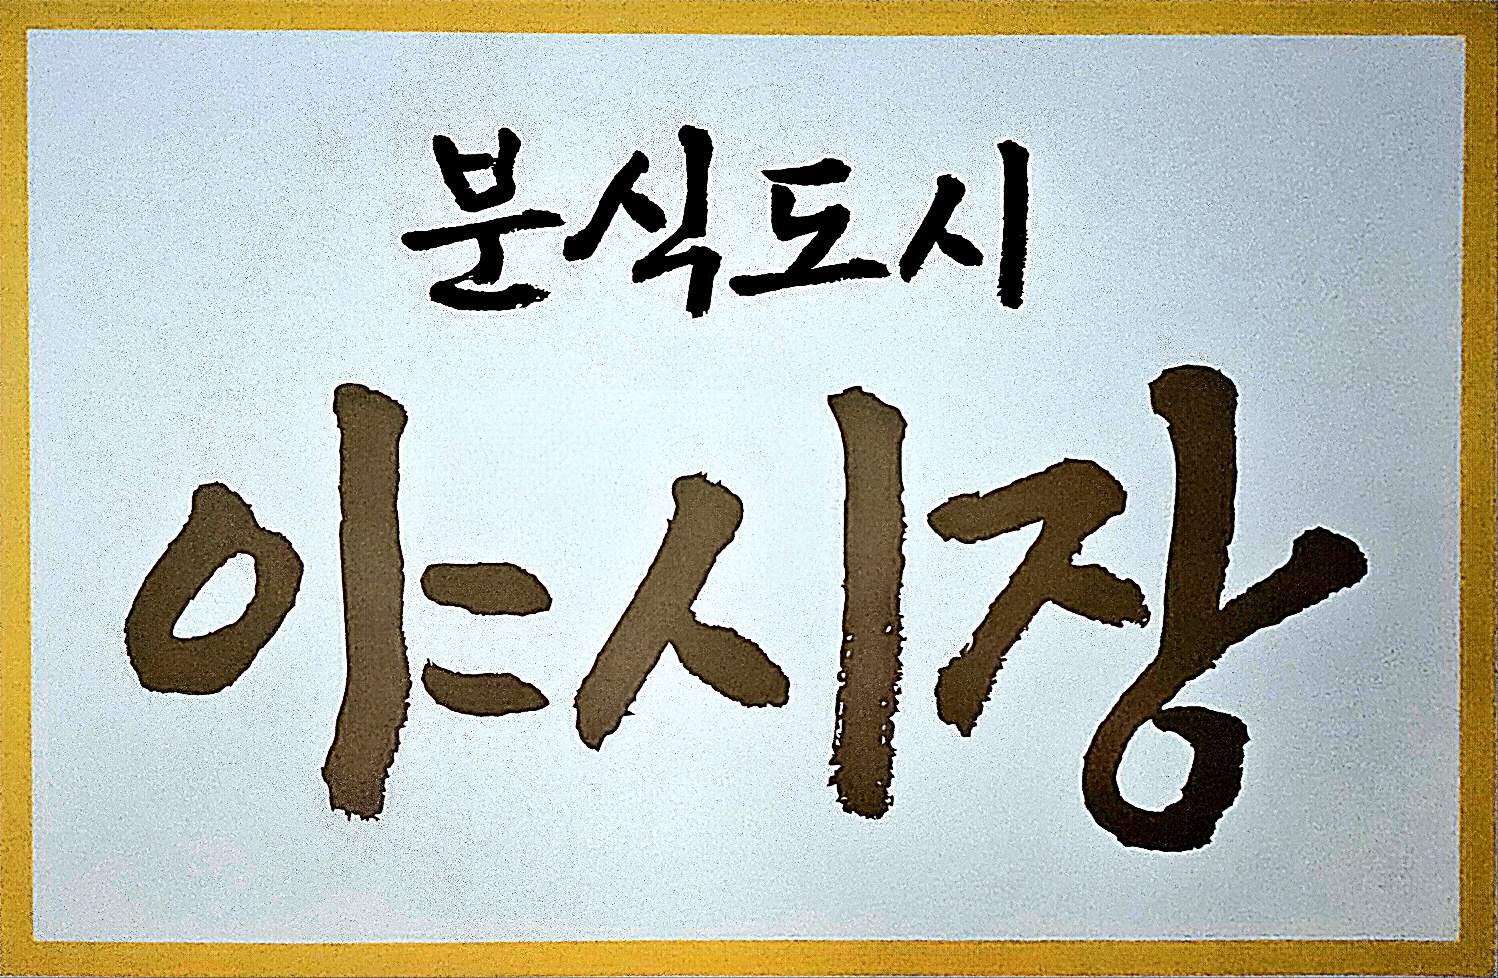 분식도시
야시장